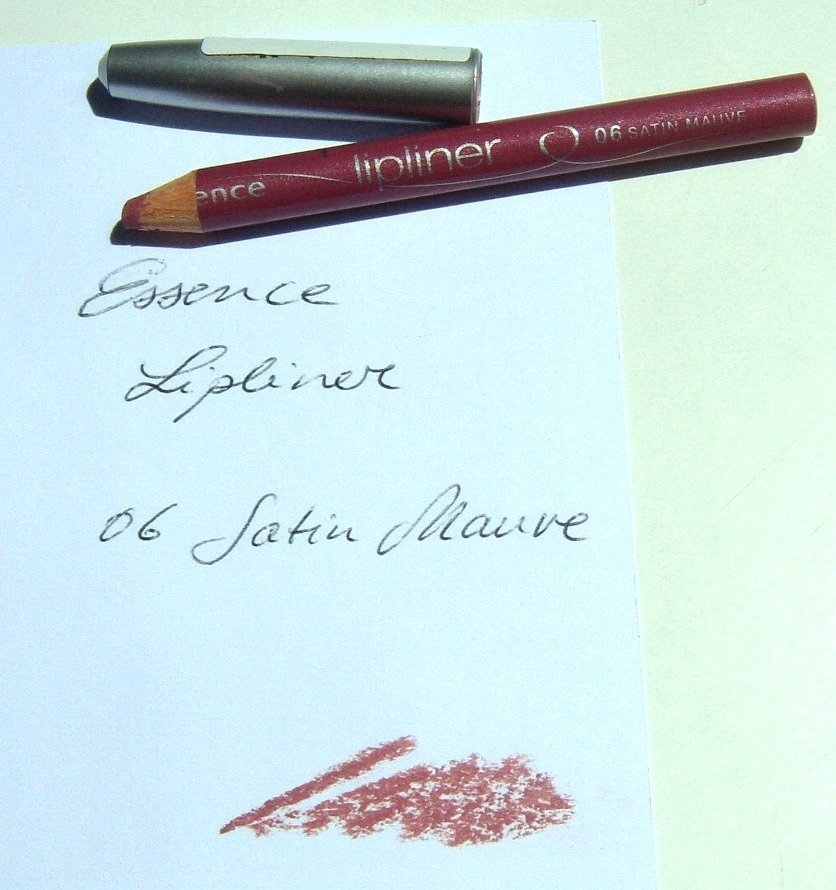 ence lipliner 06 SATIN MAUVE
Essence
Lipliner
06 Satin Mauve